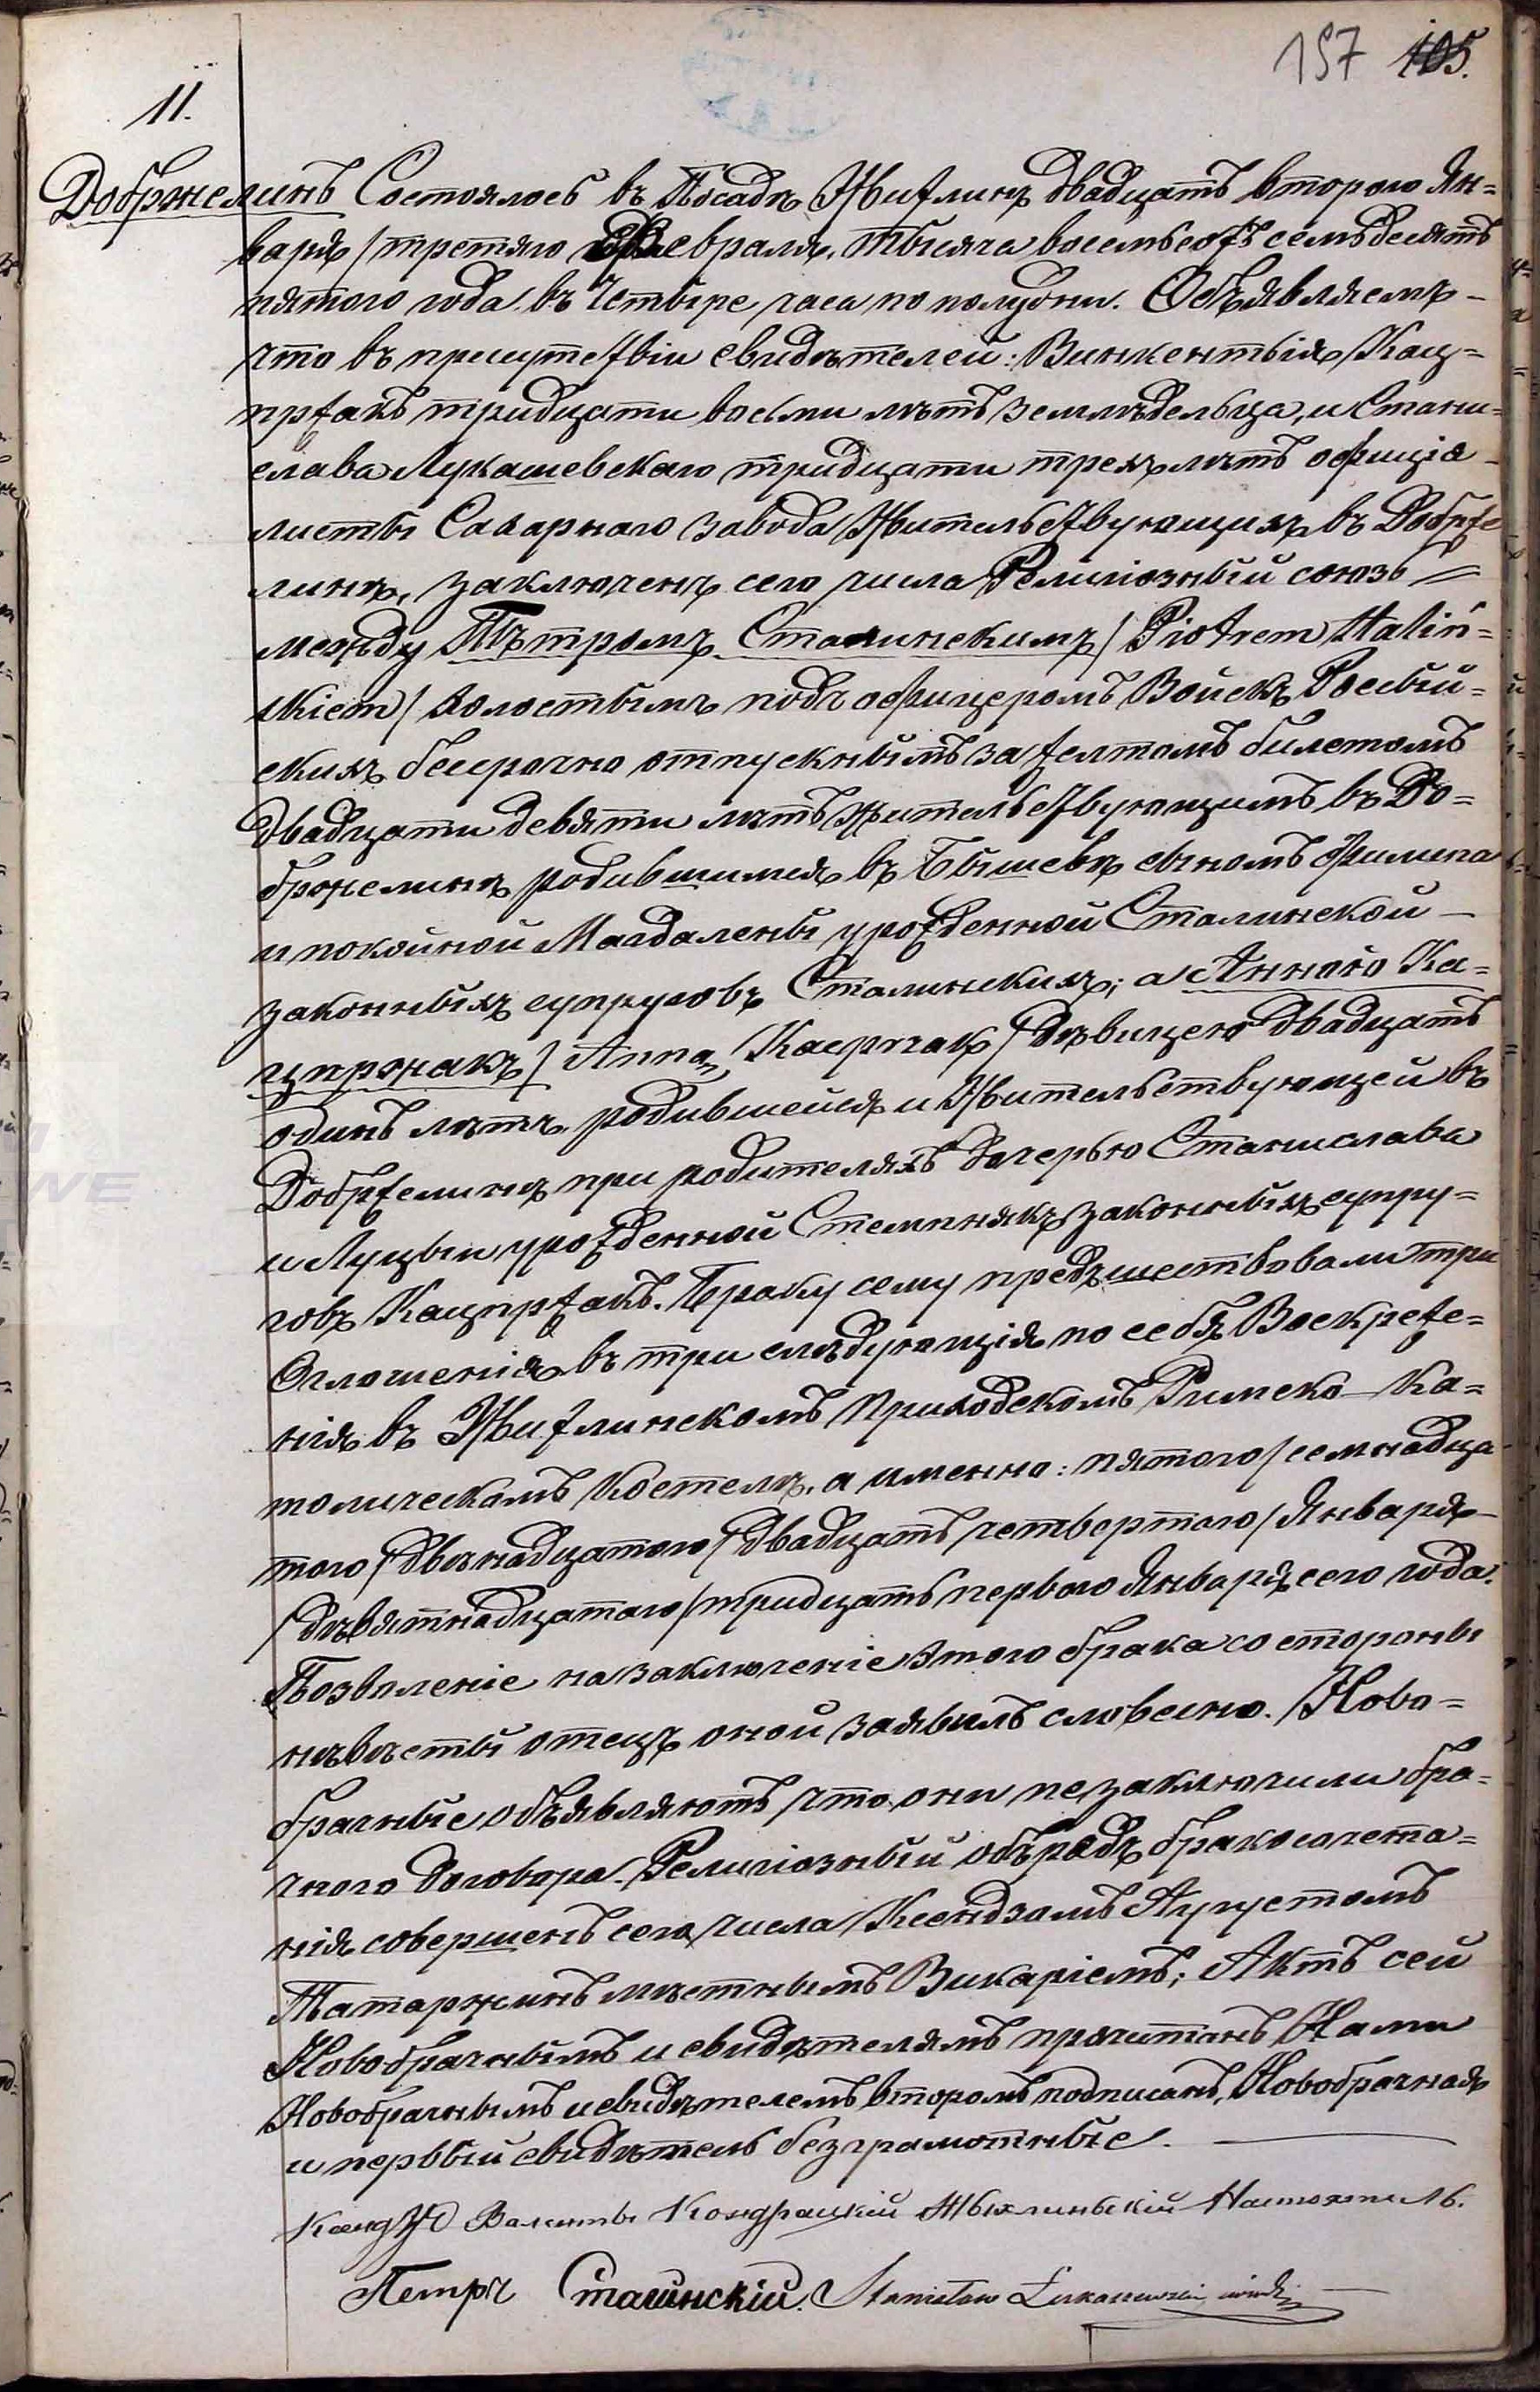 157 105.
11.
Добржелинъ Состоялось въ Посадѣ Жихлинѣ двадцать второго Ян=
варя /третяго Февраля, тысяча восемьсотъ семьдесятъ
пятого года, въ Четыре часа по полудни. Объявляемъ –
что въ присутствіи свидѣтелей: Винкентыя Кац=
пржакъ тридцати восьми лѣтъ земледѣльца, и Стани=
слава Лукашевскаго тридцати трехъ лѣтъ офиціа
листы Сахарнаго завода Жительствующихъ въ Добрже
линѣ, заключенъ сего числа Религіозный союзъ
между Пѣтромъ Сталинскимъ /Piotrem Staliń=
skiem/ холостымъ подъ офицеромъ Войскъ Россый=
скихъ безсрочно отпускнымъ за желтомъ билетомъ
двадцати девяти лѣтъ жительствующимъ въ До=
бржелинѣ родившимся въ Бышевѣ сыномъ Филипа
и покойной Магдалены урожденной Сталинской –
законныхъ супруговъ Сталинскихъ; а Анною Ка=
цпржакъ /Anną Kacprzak/ дѣвицею двадцать
одинъ лѣтъ, родившейся и Жительствующей въ
Добржелинѣ при родителяхъ дочерью Станислава
и Луцыи урожденной Стемпнякъ законныхъ супру=
говъ Кацпржакъ. Браку сему предъшествовали три
Оглошенія въ три слѣдующія по себѣ Воскресе=
нія въ Жихлинскомъ Приходскомъ Римско–Ка=
толическомъ Костелѣ, а именно: пятого /семнадца
того/ двѣнадцатого /двадцать четвертого/ Января –
/дѣвятнадцатаго/ тридцать первого Января сего года.
Позволеніе на заключеніе этого брака со стороны
нѣвѣсты отецъ оной заявилъ словесно. Ново=
брачные объявляютъ что они не заключили бра=
чного договора. Религіозный обърядъ бракосочета=
нія совершенъ сего числа Ксендзомъ Аугустомъ
Татаржинъ мѣстнымъ Викаріемъ; Актъ сей
Новобрачнымъ и свидѣтелямъ прочитанъ Нами
Новобрачнымъ и свидѣтелемъ вторымъ подписанъ, Новобрачная
и первый свидѣтель безграмотные.
Ксендзъ Валенты Кондрацкій Жыхлиньскій Настоятель.
Петръ Сталинскій. Stanisław Łukaszewski